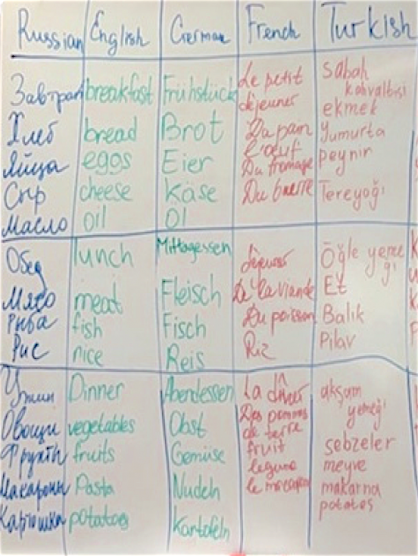 Russian English German French Turkish
Завтрак breakfast Frühstück Le petit sabah
déjeuner kahvaltısı
Хлеб bread Brot Du pain ekmek
Яйца eggs Eier L'oeuf yumurta
Сыр cheese Käse Du fromage peynir
Масло oil Öl Du beurre Tereyağı
Обед lunch Mittagessen déjeuner Öğle yeme
ği
Мясо meat Fleisch De la viande Et
Рыба fish Fisch Du poisson Balık
Рис rice Reis Riz Pilav
Ужин Dinner Abendessen La akşam
yemeği
Овощи vegetables Obst Des pommes sebzeler
de terre
Фрукты fruits Gemüse fruit meyve
Макароны Pasta Nudeln legume makarna
Картошка potatoes Kartofeln le potatos